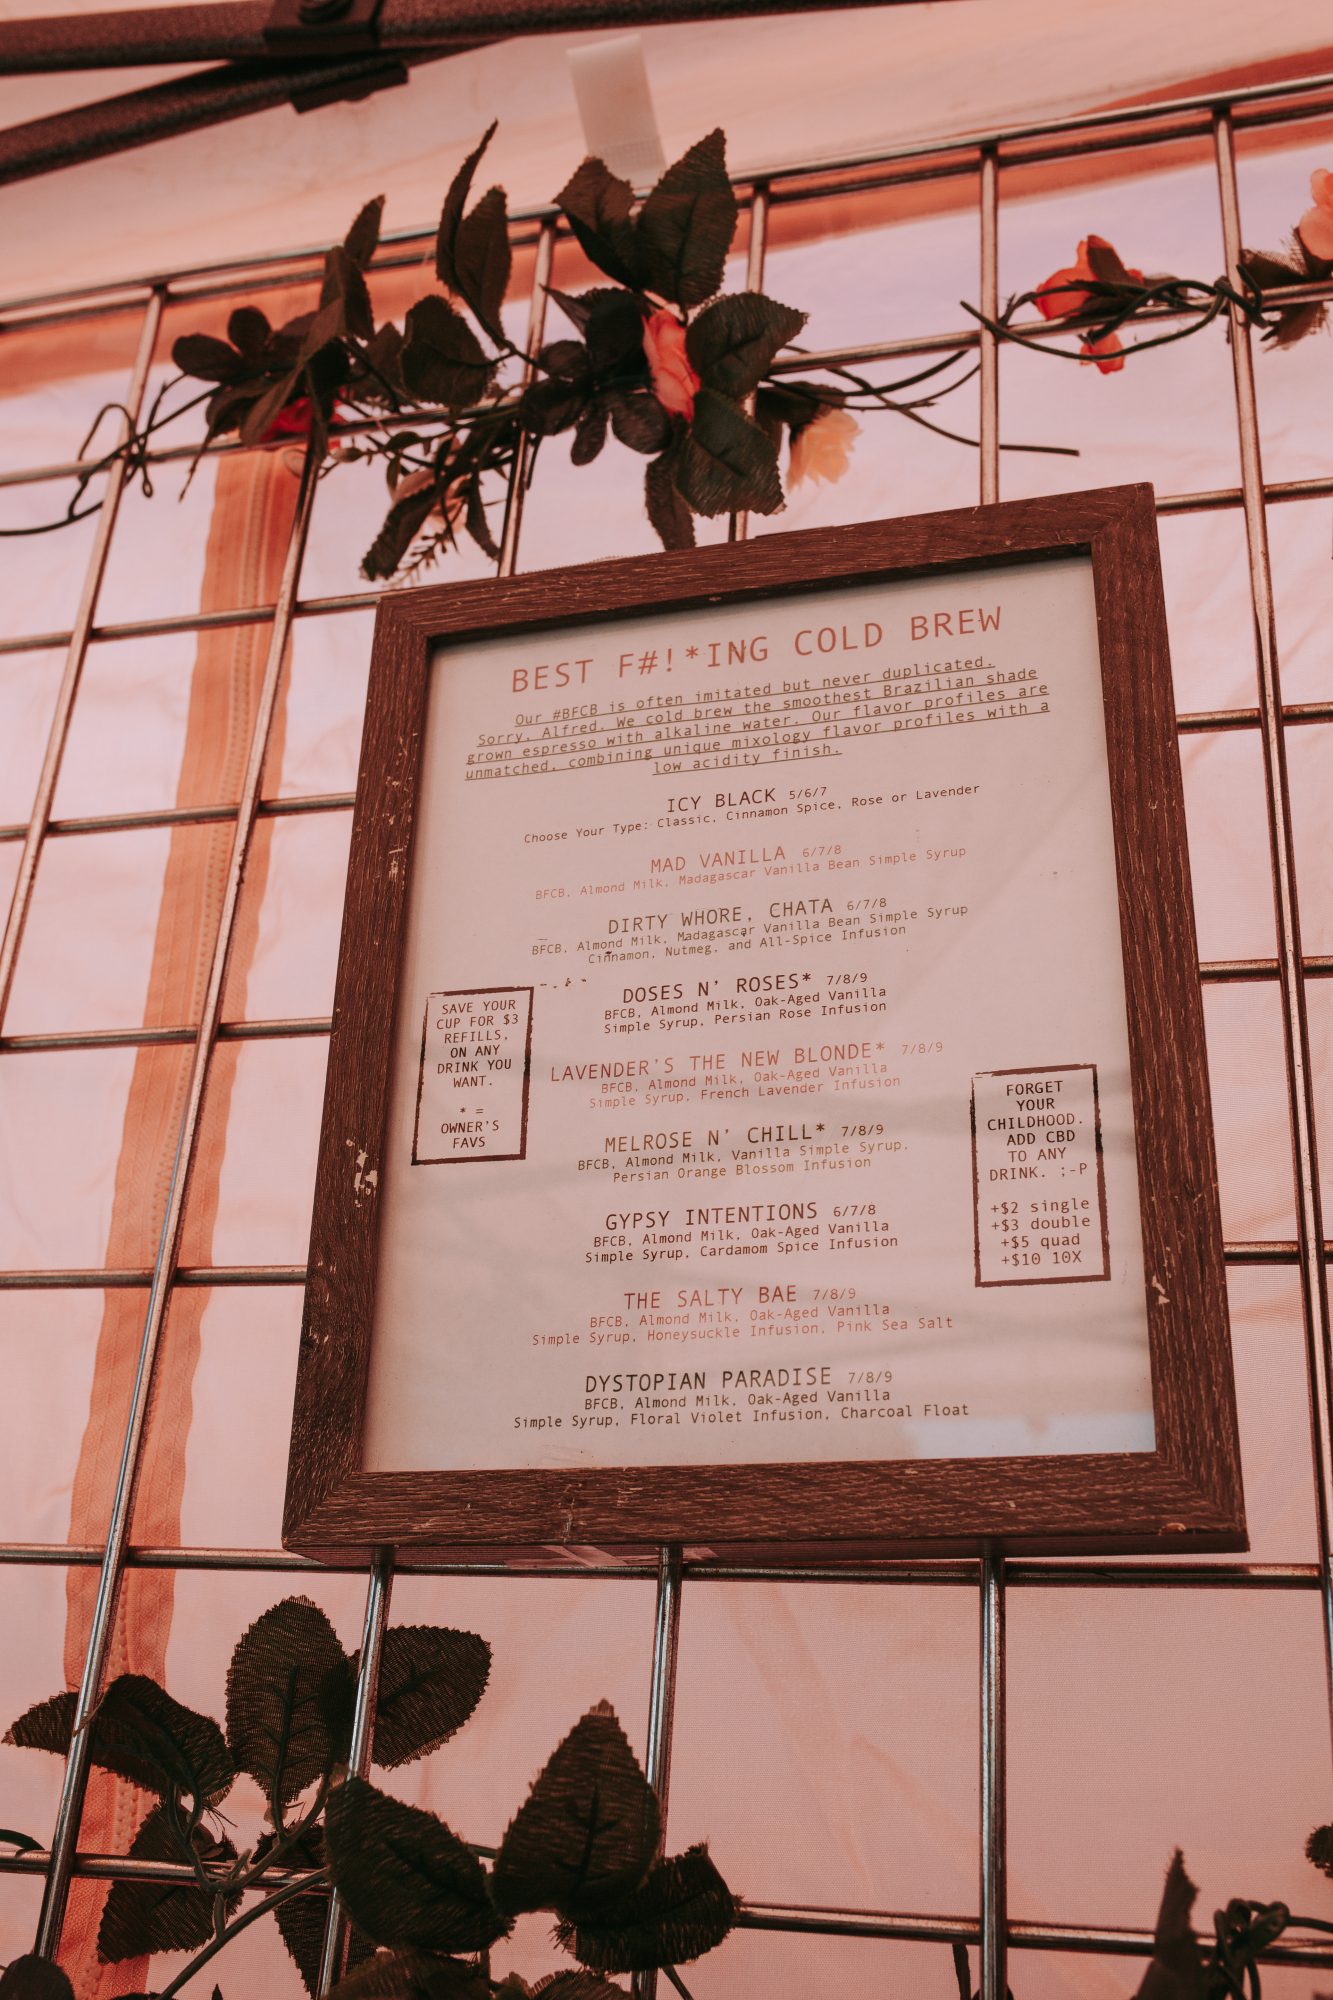 BEST F#!*ING COLD BREW
Our #BFCB is often imitated but never duplicated.
Sorry, Alfred. We cold brew the smoothest Brazilian shade
grown espresso with alkaline water. Our flavor profiles are
unmatched, combining unique mixology flavor profiles with a
low acidity finish.
ICY BLACK 5/6/7
Choose Your Type: Classic, Cinnamon Spice, Rose or Lavender
MAD VANILLA 6/7/8
BFCB, Almond Milk, Madagascar Vanilla Bean Simple Syrup
DIRTY WHORE, CHATA 6/7/8
BFCB, Almond Milk, Madagascar Vanilla Bean Simple Syrup
Cinnamon, Nutmeg, and All-Spice Infusion
DOSES N' ROSES* 7/8/9
BFCB, Almond Milk, Oak-Aged Vanilla
Simple Syrup, Persian Rose Infusion
LAVENDER'S THE NEW BLONDE* 7/8/9
BFCB, Almond Milk, Oak-Aged Vanilla
Simple Syrup, French Lavender Infusion
MELROSE N' CHILL* 7/8/9
BFCB, Almond Milk, Vanilla Simple Syrup,
Persian Orange Blossom Infusion
GYPSY INTENTIONS 6/7/8
BFCB, Almond Milk, Oak-Aged Vanilla
Simple Syrup, Cardamom Spice Infusion
THE SALTY BAE 7/8/9
BFCB, Almond Milk, Oak-Aged Vanilla
Simple Syrup, Honeysuckle Infusion, Pink Sea Salt
DYSTOPIAN PARADISE 7/8/9
BFCB, Almond Milk, Oak-Aged Vanilla
Simple Syrup, Floral Violet Infusion, Charcoal Float
SAVE YOUR
CUP FOR $3
REFILLS,
ON ANY
DRINK YOU
WANT.
* =
OWNER'S
FAVS
FORGET
YOUR
CHILDHOOD.
ADD CBD
TO ANY
DRINK. ;-P
+$2 single
+$3 double
+$5 quad
+$10 10X